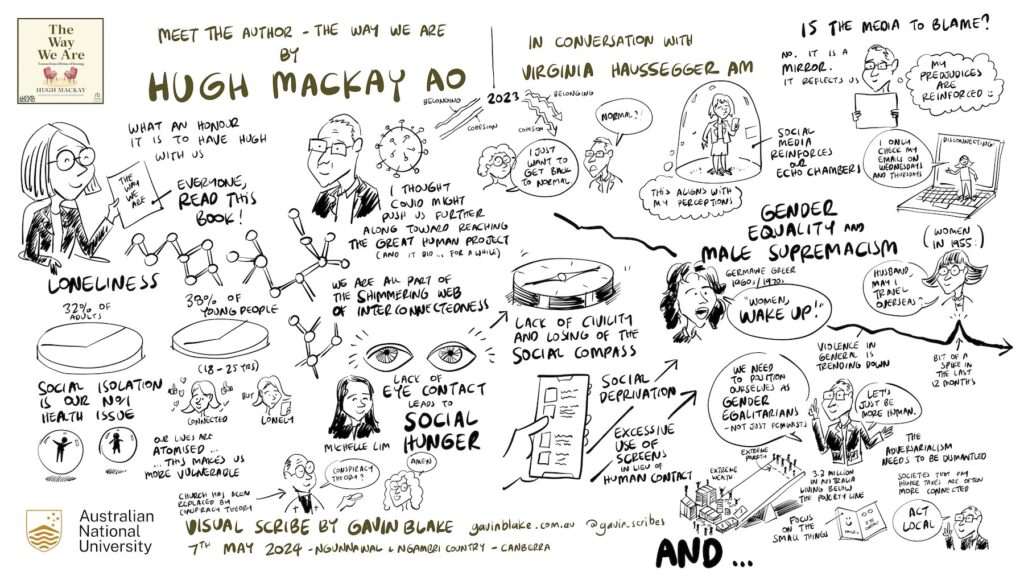 The
Way
We Are
HUGH MACKAY
MEET THE AUTHOR - THE WAY WE ARE
BY
HUGH MACKAY AO
IN CONVERSATION WITH
VIRGINIA HAUSSEGGER AM
WHAT AN HONOUR
IT IS TO HAVE HUGH
WITH US
THE
WAY
WE
ARE
EVERYONE,
READ THIS
BOOK!
I THOUGHT
COVID MIGHT
PUSH US FURTHER
ALONG TOWARD REACHING
THE GREAT HUMAN PROJECT
(AND IT DID ... FOR A WHILE)
BELONGING
COHESION
2023
BELONGING
COHESION
I JUST
WANT TO
GET BACK
TO NORMAL
NORMAL?!
THIS ALIGNS WITH
MY PERCEPTIONS
SOCIAL
MEDIA
REINFORCES
OUR
ECHO CHAMBERS
IS THE MEDIA TO BLAME?
NO. IT IS A
MIRROR.
IT REFLECTS US
MY
PREJUDICES
ARE
REINFORCED
I ONLY
CHECK MY
EMAILS ON
WEDNESDAYS
AND THURSDAYS
DISCONNECTING
LONELINESS
32% OF
ADULTS
38% OF
YOUNG PEOPLE
(18-25 YRS)
SOCIAL ISOLATION
IS OUR NO1
HEALTH ISSUE
CONNECTED
BUT
LONELY
OUR LIVES ARE
ATOMISED ...
... THIS MAKES US
MORE VULNERABLE
WE ARE ALL PART OF
THE SHIMMERING WEB
OF INTERCONNECTEDNESS
LACK OF
EYE CONTACT
LEADS TO
SOCIAL
HUNGER
MICHELLE LIM
CHURCH HAS BEEN
REPLACED BY
CONSPIRACY THEORY
CONSPIRACY
THEORY?
AMEN
LACK OF CIVILITY
AND LOSING OF THE
SOCIAL COMPASS
SOCIAL
DEPRIVATION
EXCESSIVE
USE OF
SCREENS
IN LIEU OF
HUMAN CONTACT
GENDER
EQUALITY AND
MALE SUPREMACISM
GERMAINE GREER
1960s/1970s
"WOMEN,
WAKE UP!"
(WOMEN
IN 1955:)
HUSBAND,
MAY I
TRAVEL
OVERSEAS?
VIOLENCE IN
GENERAL IS
TRENDING DOWN
BIT OF A
SPIKE IN
THE LAST
12 MONTHS
WE NEED
TO POSITION
OURSELVES AS
GENDER
EGALITARIANS
- NOT JUST FEMINISTS
LET'S
JUST BE
MORE HUMAN.
THE
ADVERSARIALISM
NEEDS TO BE DISMANTLED
EXTREME
POVERTY
EXTREME
WEALTH
3.2 MILLION
IN AUSTRALIA
LIVING BELOW
THE POVERTY LINE
SOCIETIES THAT PAY
HIGHER TAXES ARE OFTEN
MORE CONNECTED
FOCUS
ON THE
SMALL THINGS
ACT
LOCAL
AND ...
Australian
National
University
VISUAL SCRIBE BY GAVIN BLAKE gavinblake.com.au @gavin.scribes
7TH MAY 2024 - NGUNNAWAL & NGAMBRI COUNTRY - CANBERRA